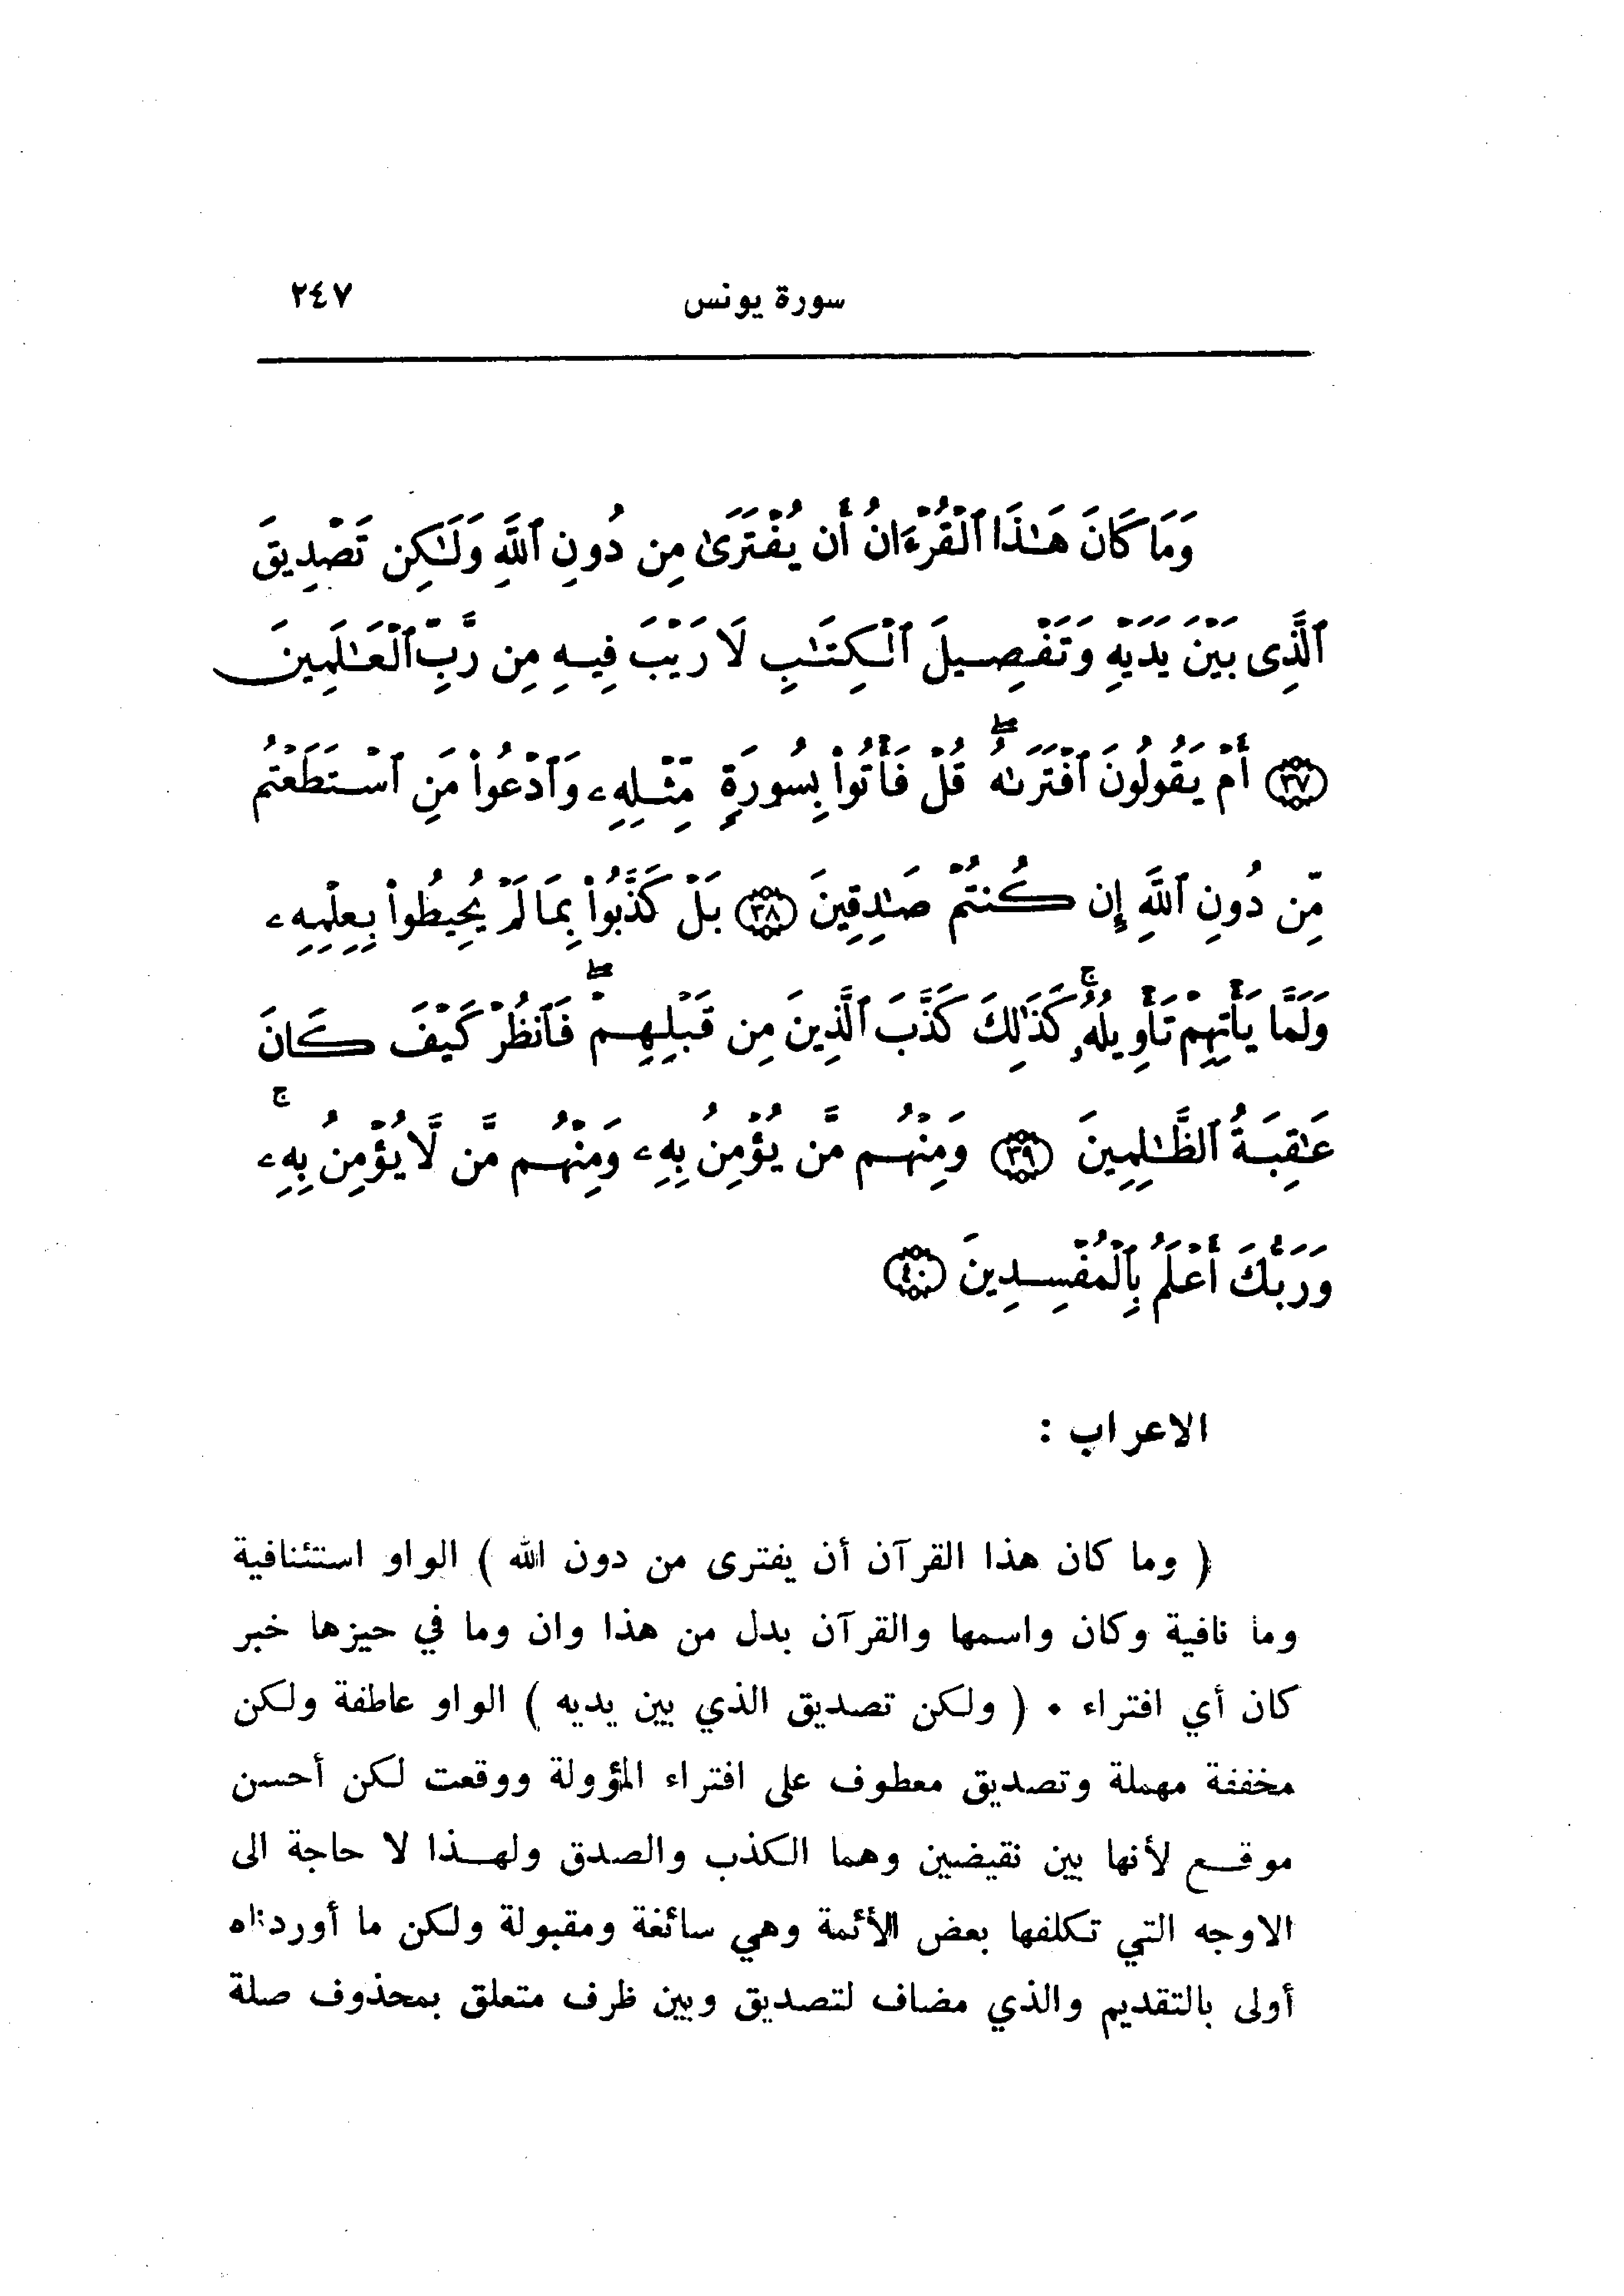 سورة يونس ٢٤٧
وَمَا كَانَ هَـٰذَا ٱلْقُرْءَانُ أَن يُفْتَرَىٰ مِن دُونِ ٱللَّهِ وَلَـٰكِن تَصْدِيقَ
ٱلَّذِى بَيْنَ يَدَيْهِ وَتَفْصِيلَ ٱلْكِتَـٰبِ لَا رَيْبَ فِيهِ مِن رَّبِّ ٱلْعَـٰلَمِينَ
﴿٣٧﴾ أَمْ يَقُولُونَ ٱفْتَرَىٰهُ ۖ قُلْ فَأْتُوا۟ بِسُورَةٍ مِّثْلِهِۦ وَٱدْعُوا۟ مَنِ ٱسْتَطَعْتُم
مِّن دُونِ ٱللَّهِ إِن كُنتُمْ صَـٰدِقِينَ ﴿٣٨﴾ بَلْ كَذَّبُوا۟ بِمَا لَمْ يُحِيطُوا۟ بِعِلْمِهِۦ
وَلَمَّا يَأْتِهِمْ تَأْوِيلُهُۥ ۚ كَذَٰلِكَ كَذَّبَ ٱلَّذِينَ مِن قَبْلِهِمْ ۖ فَٱنظُرْ كَيْفَ كَانَ
عَـٰقِبَةُ ٱلظَّـٰلِمِينَ ﴿٣٩﴾ وَمِنْهُم مَّن يُؤْمِنُ بِهِۦ وَمِنْهُم مَّن لَّا يُؤْمِنُ بِهِۦ ۚ
وَرَبُّكَ أَعْلَمُ بِٱلْمُفْسِدِينَ ﴿٤٠﴾
الاعراب :
( وما كان هذا القرآن أن يفترى من دون الله ) الواو استئنافية
وما نافية وكان واسمها والقرآن بدل من هذا وان وما في حيزها خبر
كان أي افتراء ٠ ( ولكن تصديق الذي بين يديه ) الواو عاطفة ولكن
مخففة مهملة وتصديق معطوف على افتراء المؤولة ووقعت لكن أحسن
موقع لأنها بين نقيضين وهما الكذب والصدق ولهذا لا حاجة الى
الاوجه التي تكلفها بعض الأئمة وهي سائغة ومقبولة ولكن ما أوردناه
أولى بالتقديم والذي مضاف لتصديق وبين ظرف متعلق بمحذوف صلة